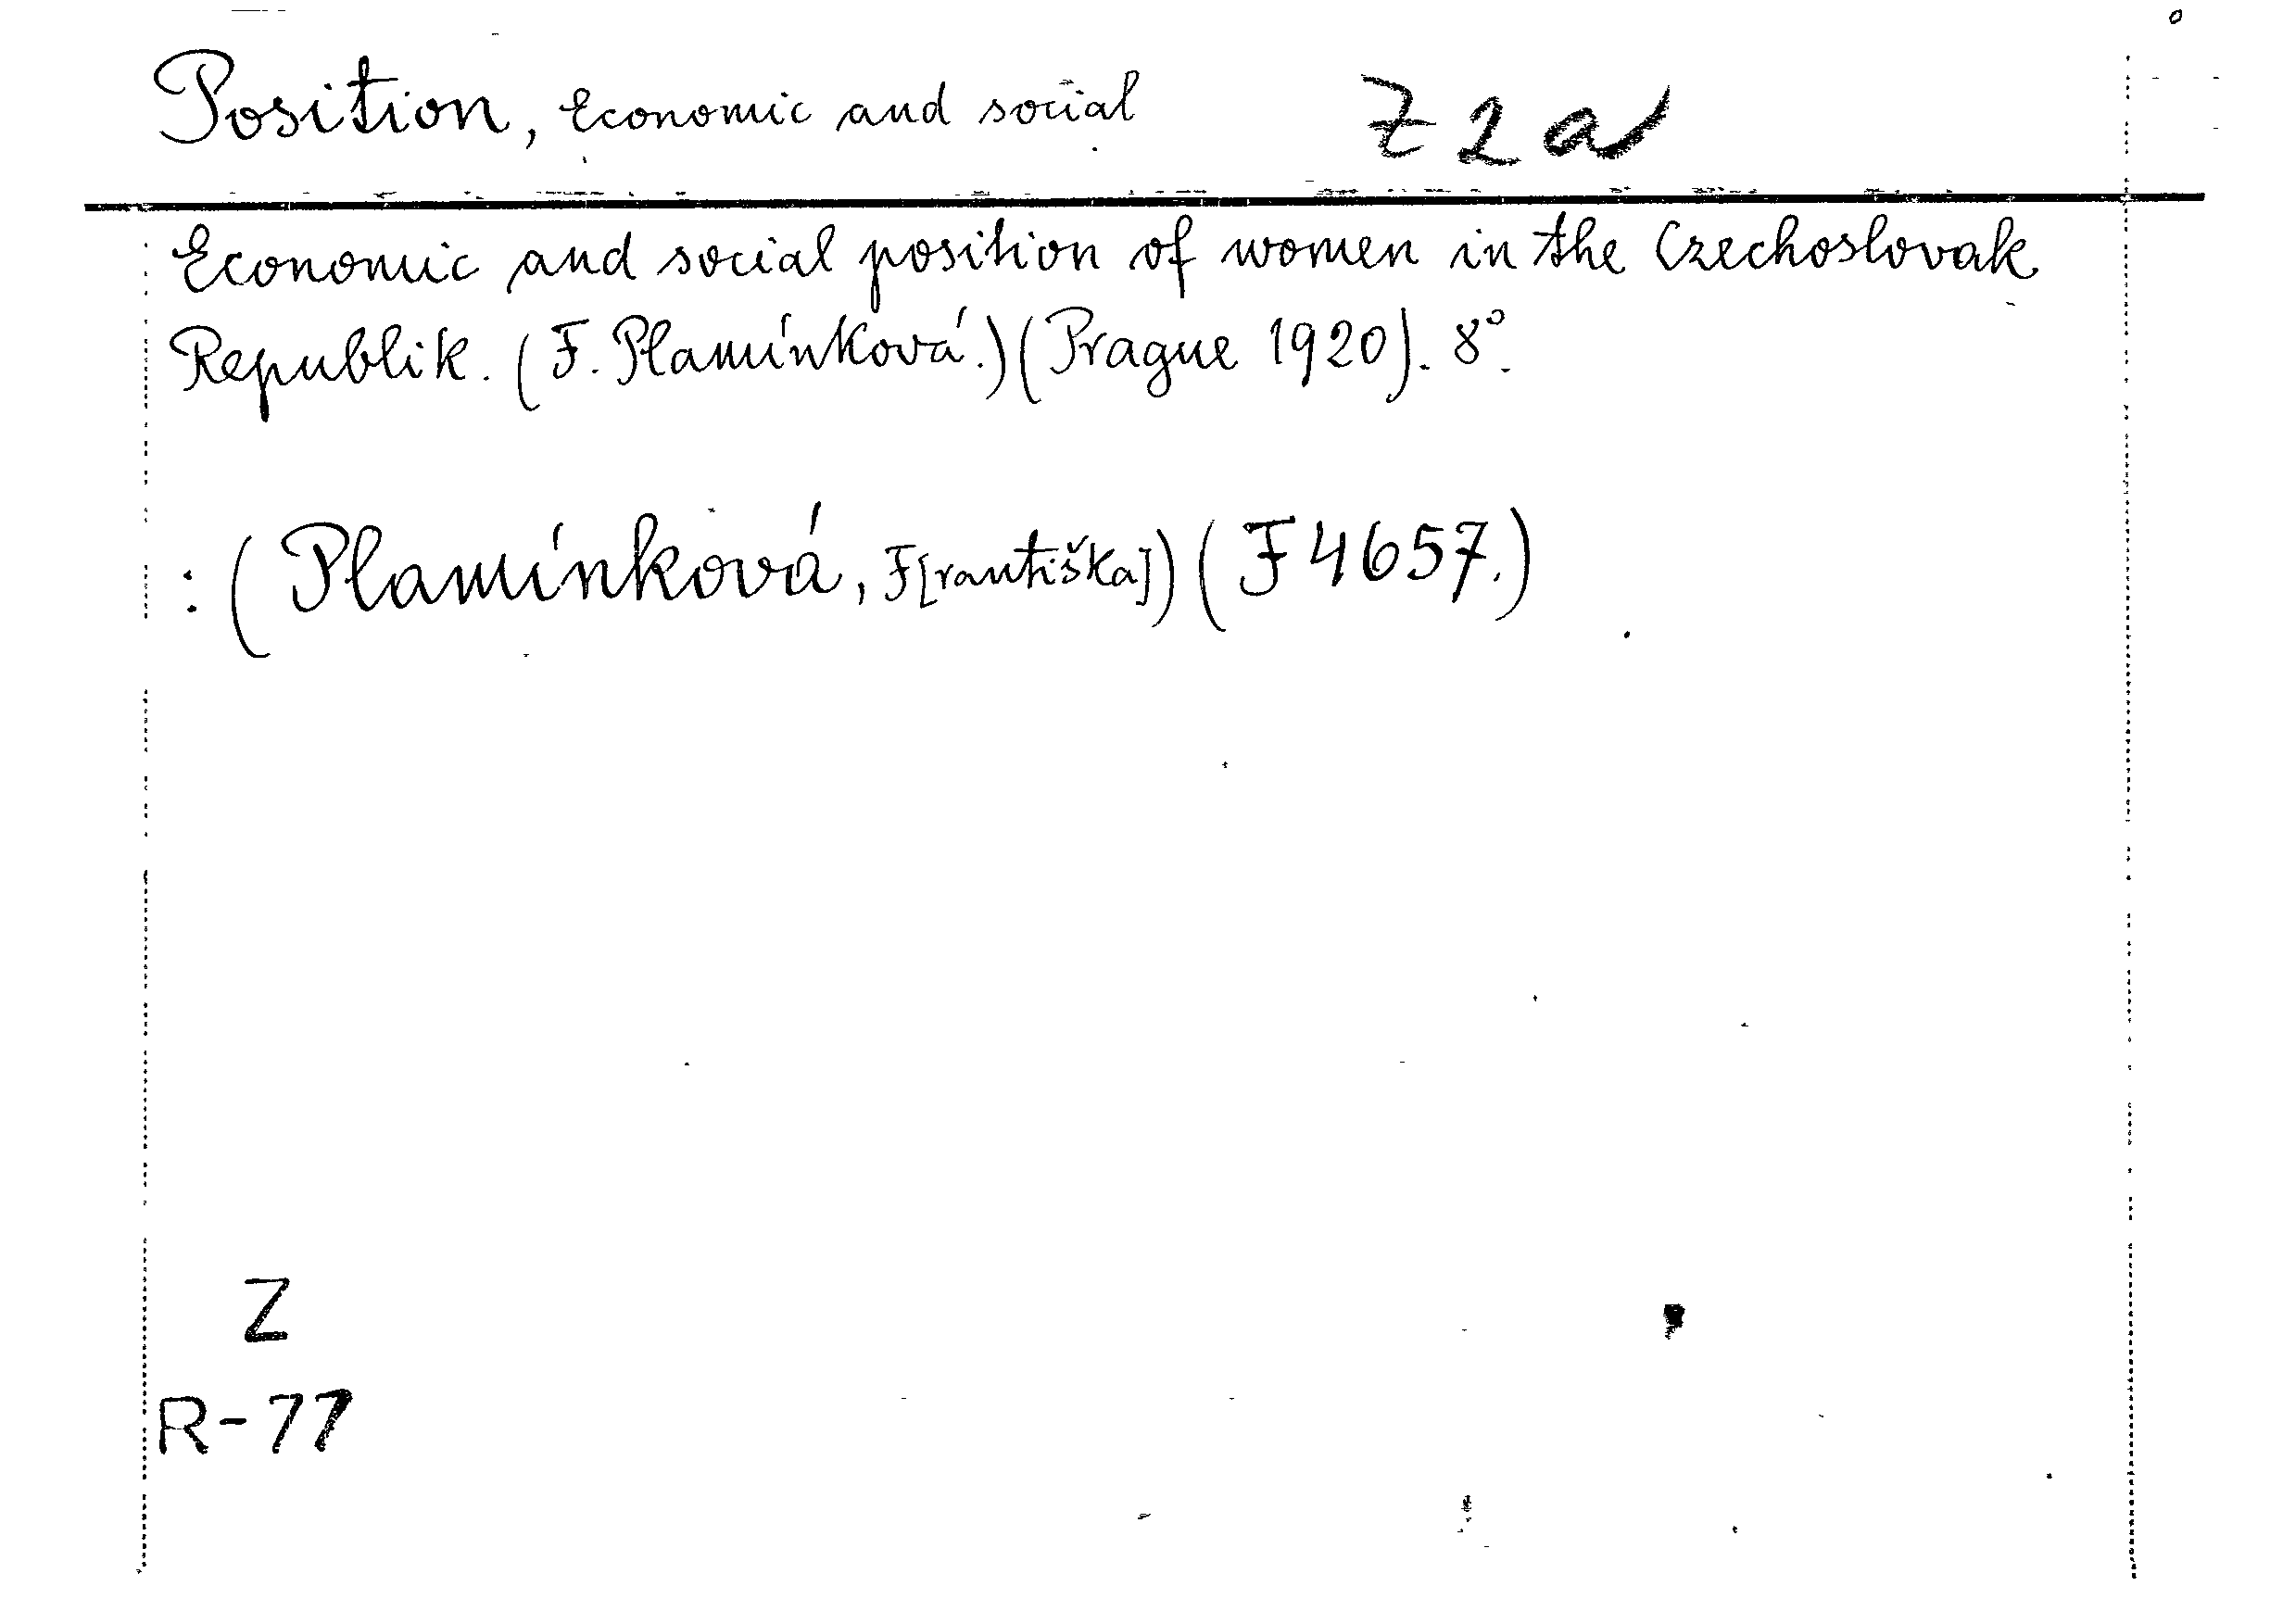 Position, Economic and social Z 2 a
Economic and social position of women in the Czechoslovak
Republik. (F. Plamínková.) (Prague 1920). 8°.
: (Plamínková, F[rantiška]) (F 4657.)
Z
R-77